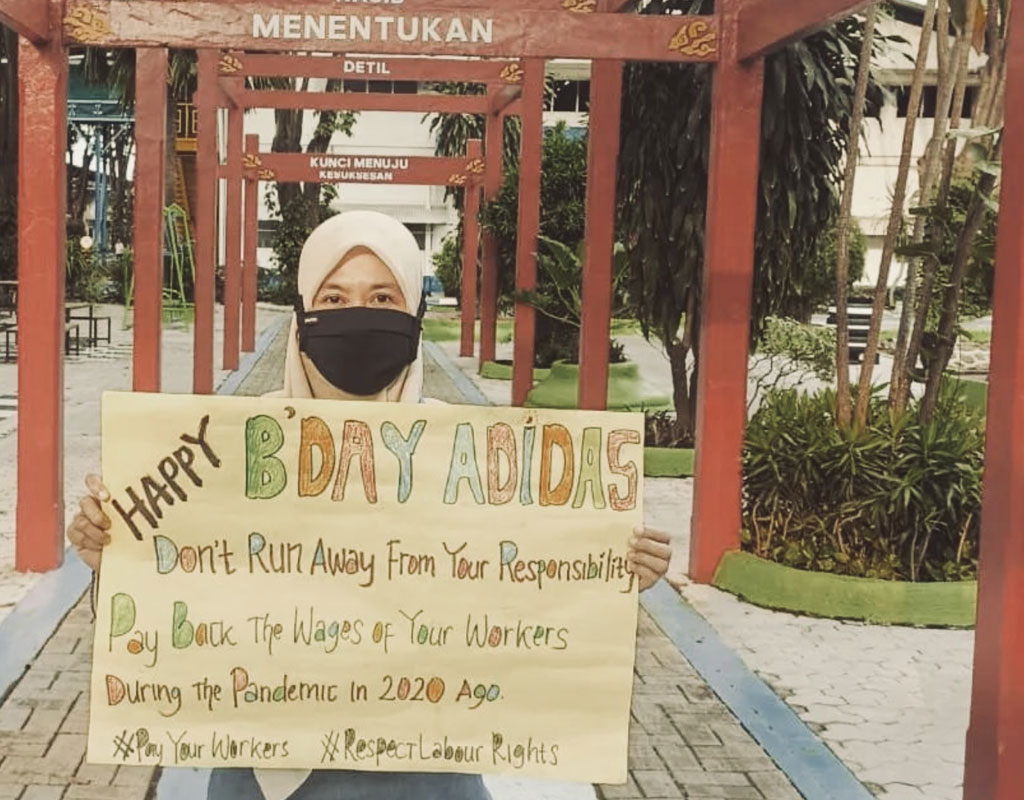 MENENTUKAN
DETIL
KUNCI MENUJU
KESUKSESAN
HAPPY B'DAY ADIDAS
Don't Run Away From Your Responsibility
Pay Back The Wages of Your Workers
During the Pandemic In 2020 Ago.
#Pay Your Workers #Respect Labour Rights